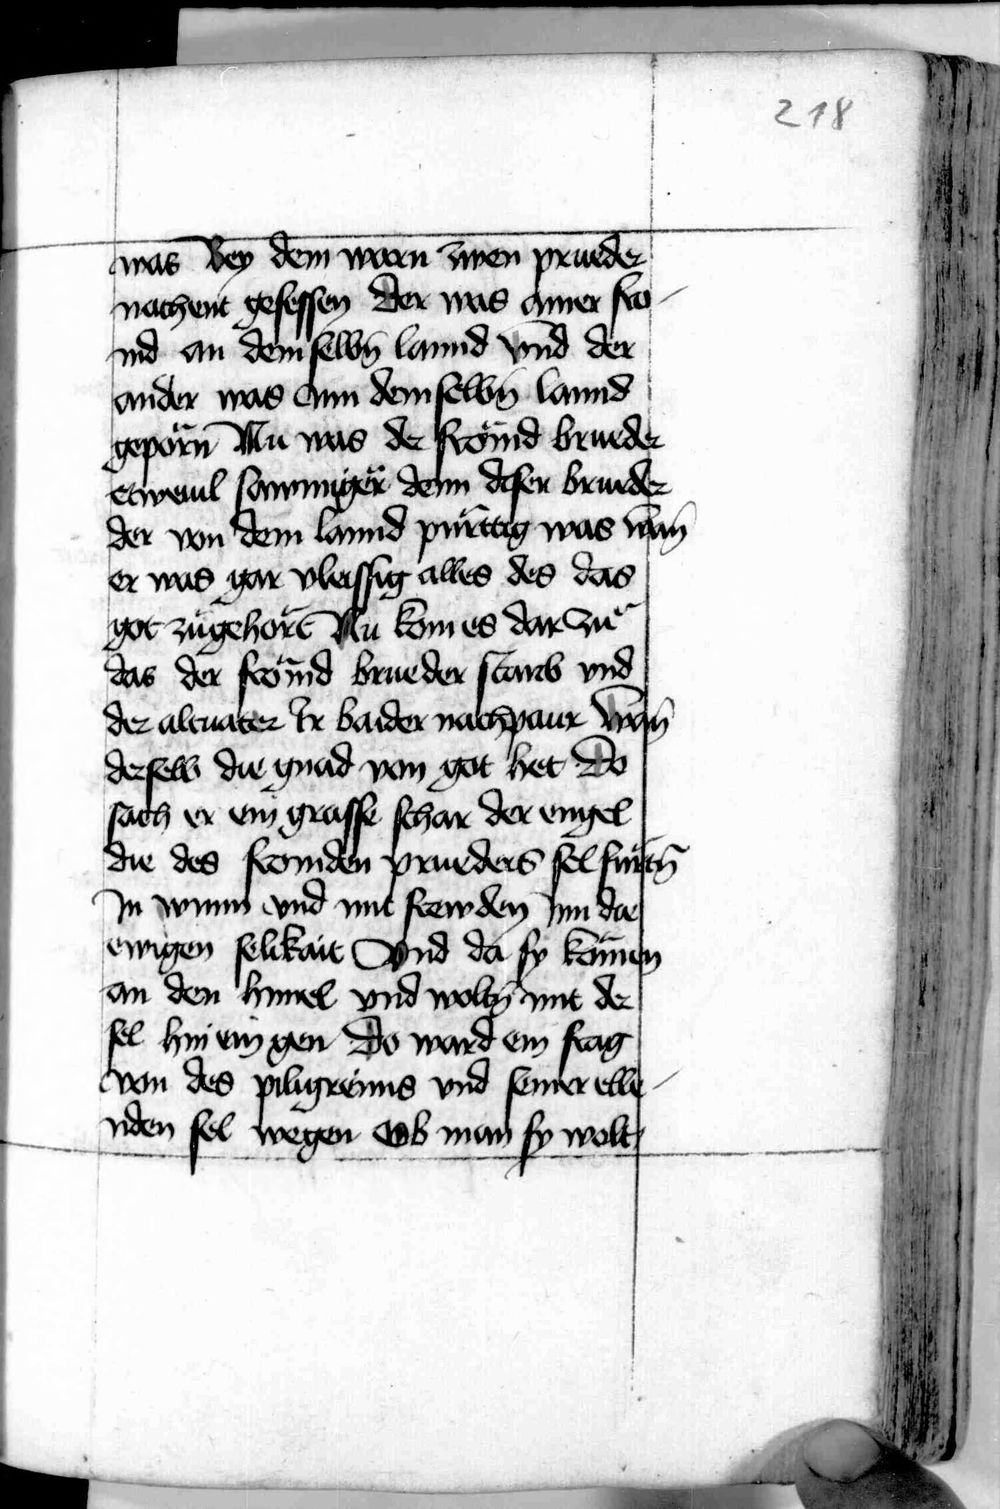 218
was Bey dem warn zwen prueder
nachent gesessen Der was ainer fro-
md an dem selbñ lannd Vnd der
ander was Ann dem selbñ lannd
geporñ Nu was der frömd brueder
etweuil sawmiger denn diser brueder
der von dem lannd purttig was wañ
er was gar vleissig alles des das
got zugehort Nu kom es dar zu
das der frömd brueder starb vnd
der altuater Ir baider nachpaur wañ
derselb die gnad von got het Do
sach er ein grasse schar der engel
die des fromden prueders sel furtñ
In wunn vnd mit frewden Inn die
ewigen selikait Vnd da sy kömen
an den himel vnd woltñ mit der
sel hin ein gen Do ward ein frag
von des piligreims vnd seiner elle-
nden sel wegen Ob man sy wolt